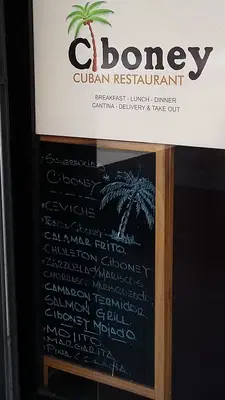 Ciboney
CUBAN RESTAURANT
BREAKFAST - LUNCH - DINNER
CANTINA - DELIVERY & TAKE OUT
Ciboney
CEVICHE
Ciboney
CALAMAR FRITO
CHULETON CIBONEY
ZARZUELA d MARISCOS
CAMARON TERMIDOR
SALMON GRILL
CIBONEY MOJADO
MOJITO
MARGARITA
PIÑA COLADA